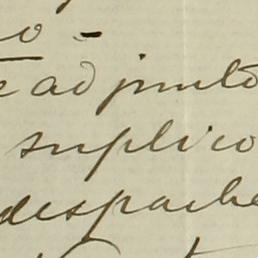 o -
e adjunto
suplico
despache